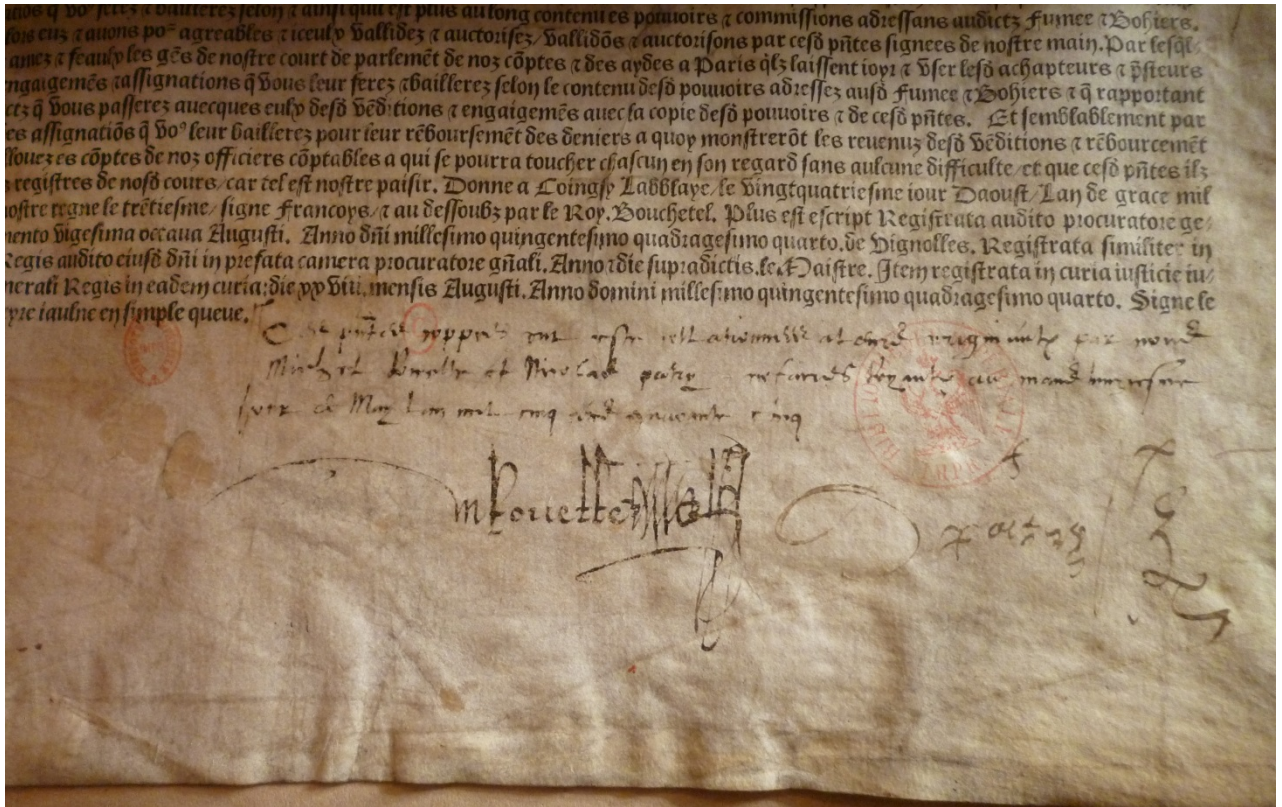 q vo⁹ ferez ⁊ baillerez selon ⁊ ainsi qui est plus au long contenu es pouuoirs ⁊ commissions adressans audictz Fumee ⁊ Bohiers.
⁊ auons po² agreables ⁊ iceulx vallidez ⁊ auctorisez/ vallidōs ⁊ auctorisons par cesd pñtes signees de nostre main. Par lesql
amez ⁊ feaulx les gēs de nostre court de parlemēt de noz cōptes ⁊ des aydes a Paris qlz laissent ioyr ⁊ vser lesd achapteurs ⁊ p̄steurs
ngaigemēs ⁊ assignations q̄ vous leur ferez ⁊ baillerez selon le contenu desd pouuoirs adressez ausd Fumee ⁊ Bohiers ⁊ q̄ rapportant
ctz q̄ vous passerez auecques eulx desd vēditions ⁊ engaigemēs auec la copie desd pouuoirs ⁊ de cesd pñtes. Et semblablement par
es assignatiōs q̄ vo⁹ leur baillerez pour leur rēboursemēt des deniers a quoy monstrerōt les reuenuz desd vēditions ⁊ rēbourcemēt
llouez es cōptes de noz officiers cōptables a qui se pourra toucher chascun en son regard sans aulcune difficulte/ et que cesd pñtes ilz
registres de nosd cours/ car tel est nostre paisir. Donne a Coingsy Labblaye/ le vingtquatriesme iour Daoust/ Lan de grace mil
nostre regne le trētiesme/ signe Francoys/ ⁊ au dessoubz par le Roy. Bouchetel. Plus est escript Registrata audito procuratore ge/
mento vigesima occaua Augusti. Anno dñi millesimo quingentesimo quadragesimo quarto. de Vignolles. Registrata similiter in
Regis audito eiusd dñi in prefata camera procuratore gñali. Anno ⁊ die supradictis. le Maistre. Item registrata in curia iusticie iu/
nerali Regis in eadem curia: die xxviii. mensis Augusti. Anno domini millesimo quingentesimo quadragesimo quarto. Signe le
cyre iaulne en simple queue.
pñtes coppies ont este collationnees aux originaulx par nous
Nicolas patry notaires
Jour de May lan mil cinq cens quarante cinq